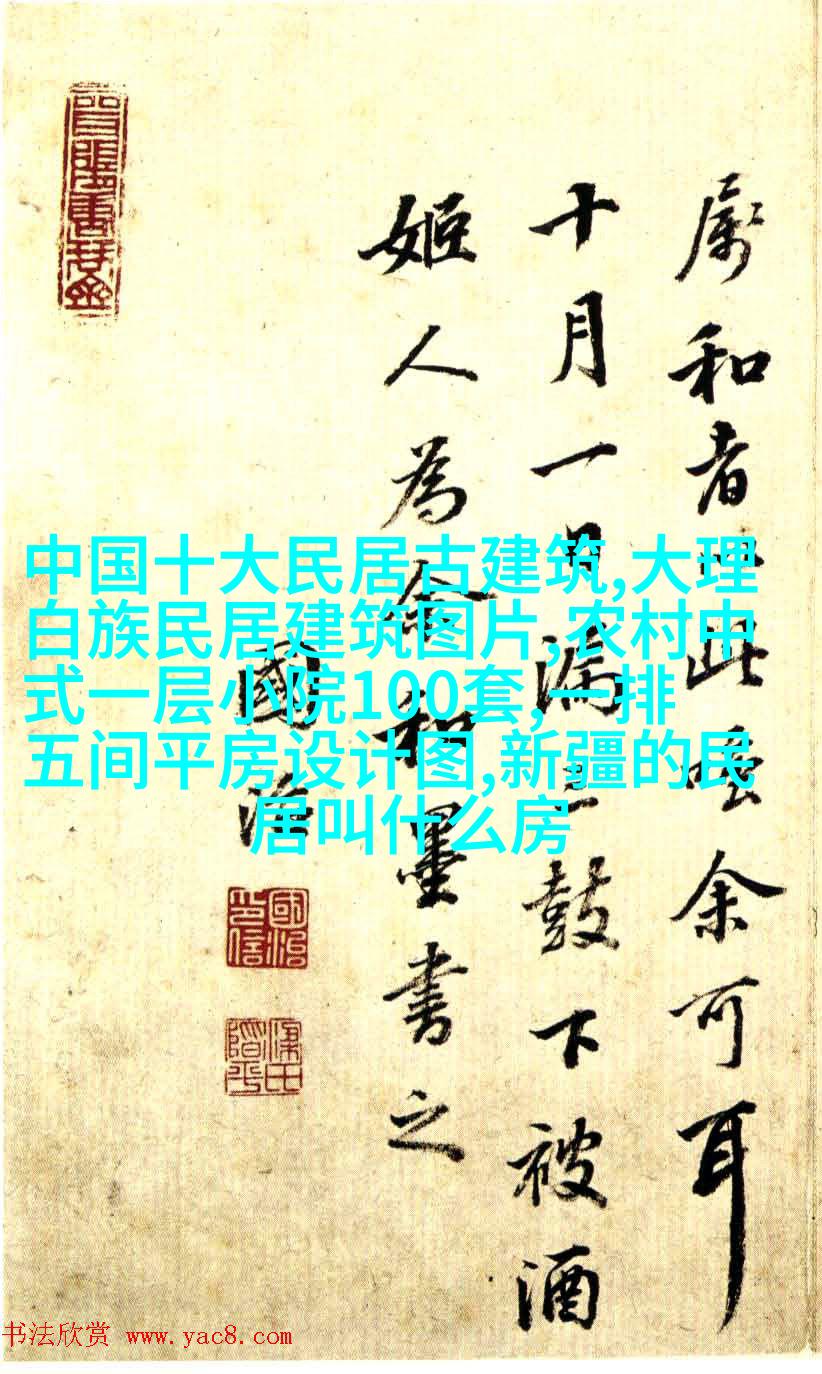 属和者以此嗤余可耳
十月一日漏三鼓下被酒
姬人為余和墨書之
國治
國治印信
中国十大民居古建筑,大理
白族民居建筑图片,农村中
式一层小院100套,一排
五间平房设计图,新疆的民
居叫什么房
书法欣赏 www.yac8.com